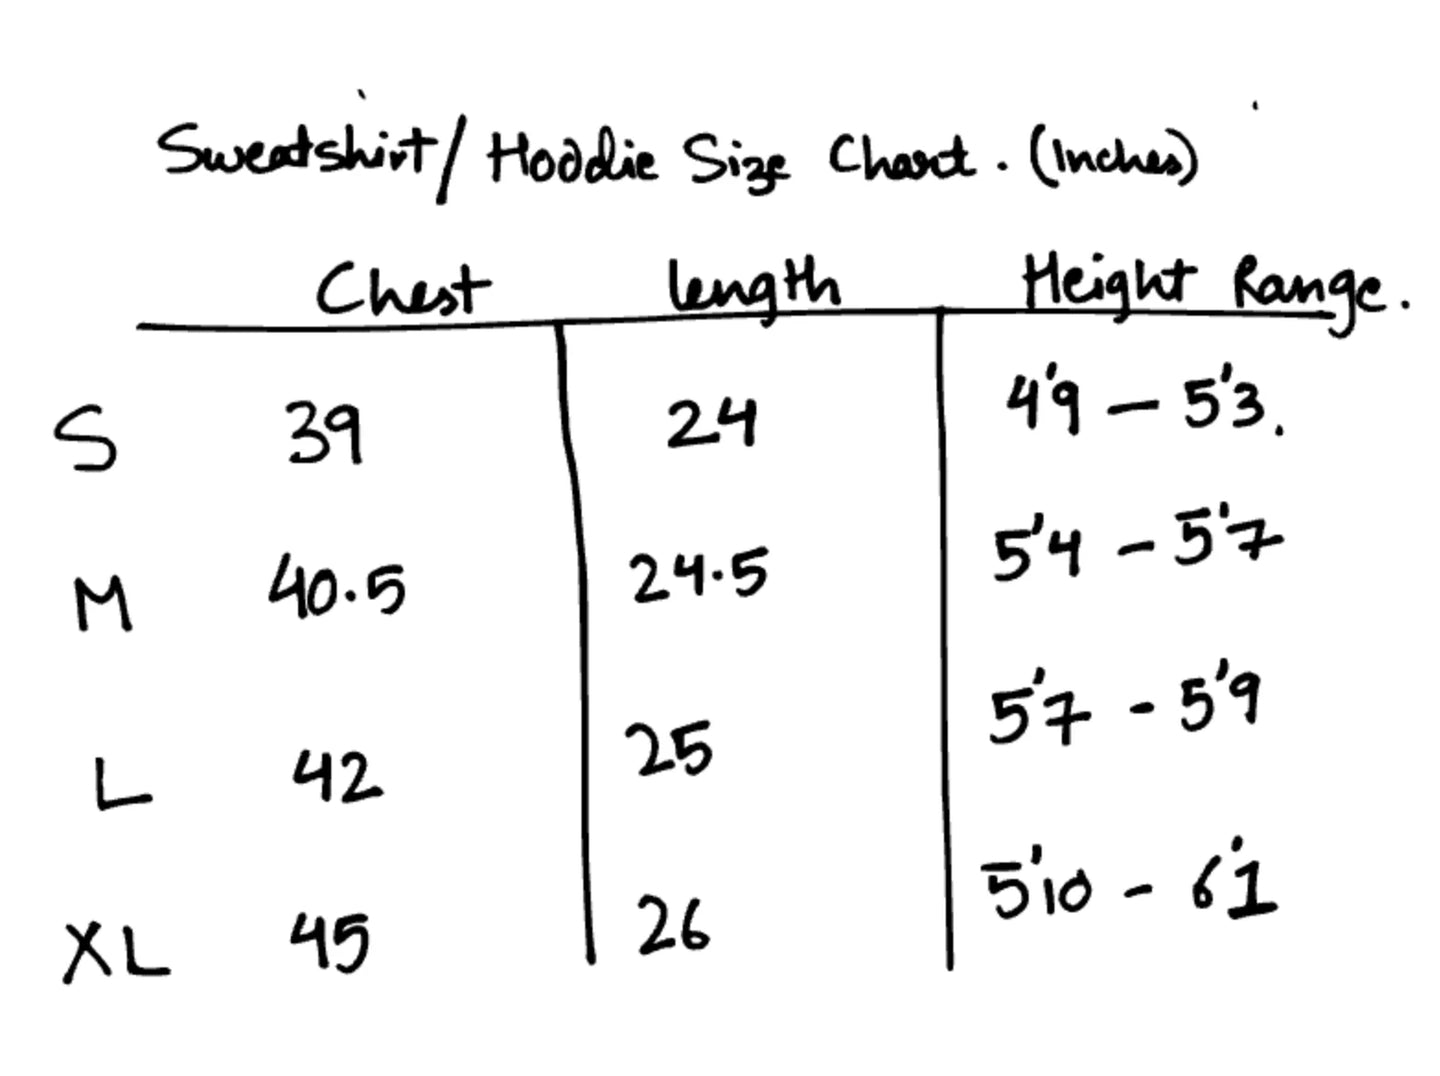 Sweatshirt/ Hoodie Size Chart. (Inches)
Chest length Height Range.
S 39 24 4'9 - 5'3.
M 40.5 24.5 5'4 - 5'7
L 42 25 5'7 - 5'9
XL 45 26 5'10 - 6'1